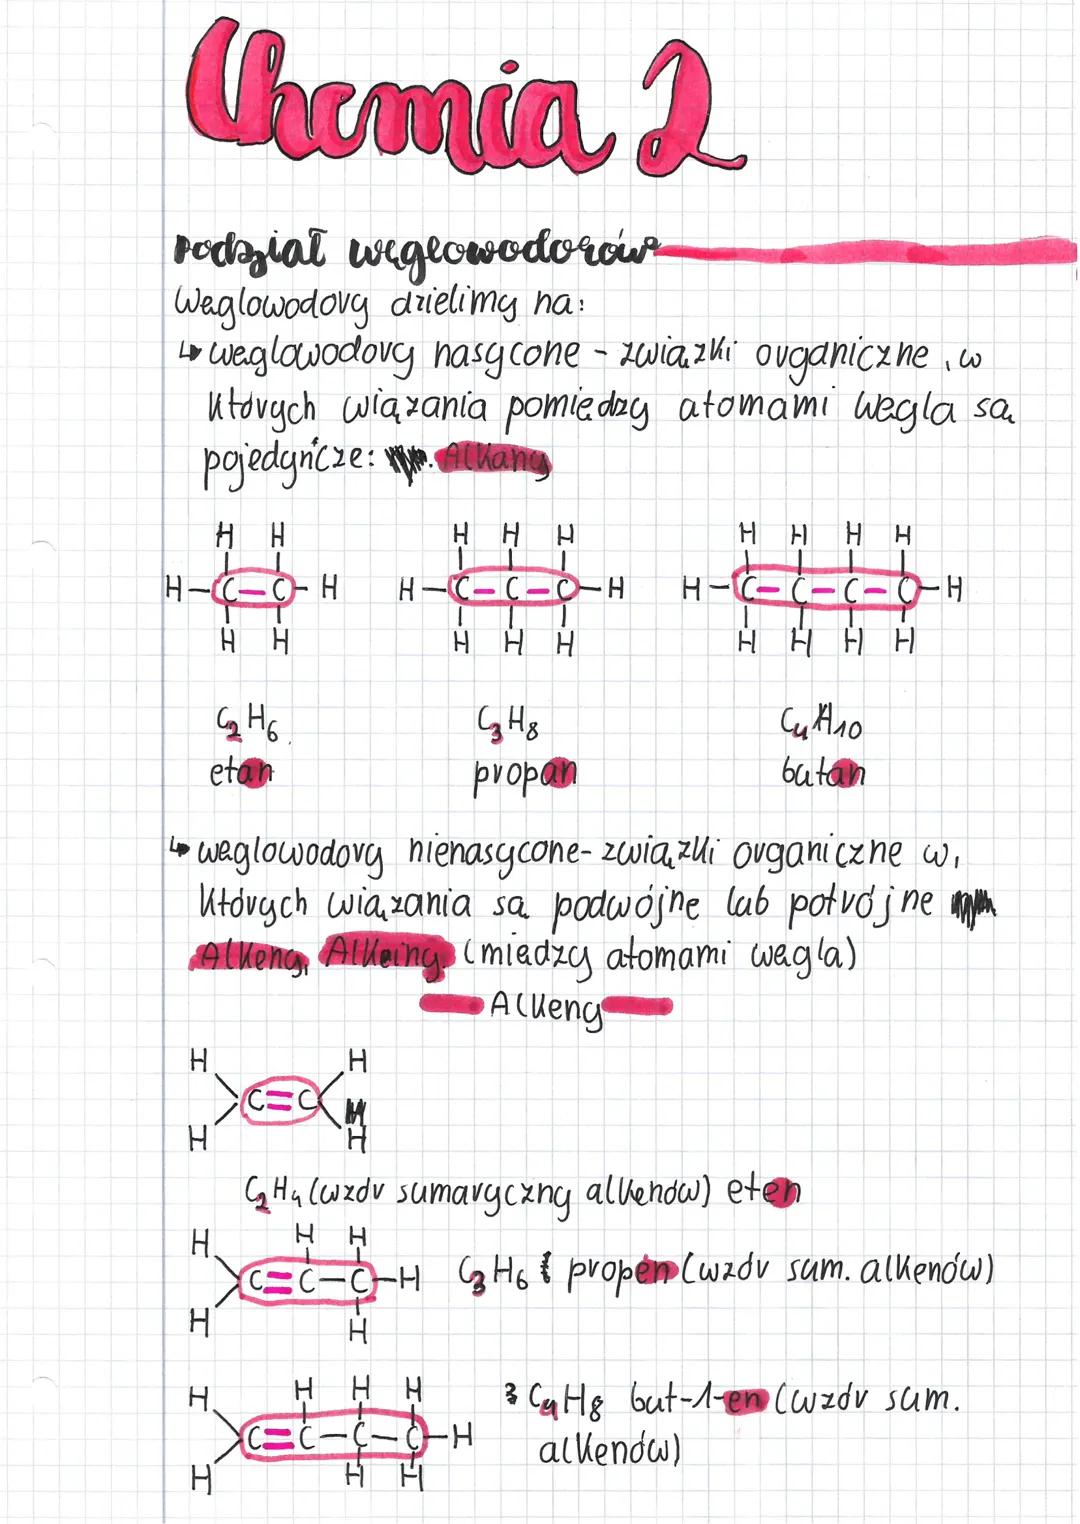 Chemia 2
Podział węglowodorów
Węglowodory dzielimy na:
↳ węglowodory nasycone - związki organiczne, w
których wiązania pomiędzy atomami węgla są
pojedyńcze: Alkany
H H H H H H H H H
H-C-C-H H-C-C-C-H H-C-C-C-C-H
H H H H H H H H H
C2H6 C3H8 C4H10
etan propan butan
↳ węglowodory nienasycone- związki organiczne w,
których wiązania są podwójne lub potrójne
Alkeny, Alkeiny. (między atomami węgla)
Alkeny
H H
C=C
H H
C2H4 (wzór sumaryczny alkenów) eten
H H H
C=C-C-H C3H6 propen (wzór sum. alkenów)
H H
H H H H
3 C4H8 but-1-en (wzór sum.
C=C-C-C-H alkenów)
H H H